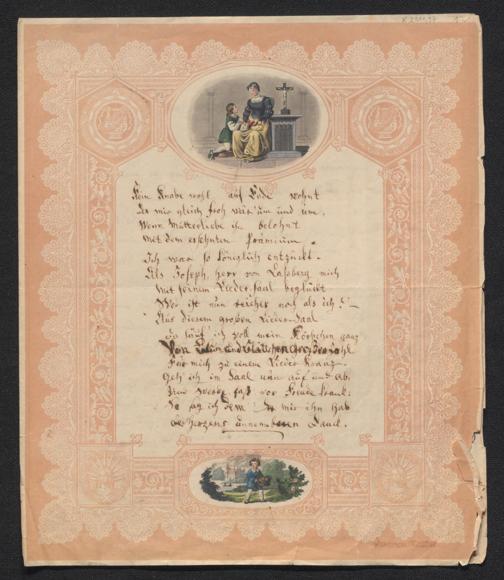 Kein Knabe wohl auf Erde wohnt
Der wie gleich froh wär um und um,
Wenn Mutterliebe ihn belohnt
Mit dem ersehnten Prämium.
Ich war so königlich entzückt.
Als Joseph, Herr von Laßberg mich
Mit seinem Liedersaal beglückt
Wer ist nun reicher noch als ich?
Aus diesem großen Lieder-Saal
So voll mein Körbchen ganz
Von und Blättchen große Zahl
Für mich zu einem Lieder Kranz
Geh ich im Saal nun auf und ab,
Und werde fast vor Freude krank;
So sag ich dem der mir ihn gab
des Herzens Dank.